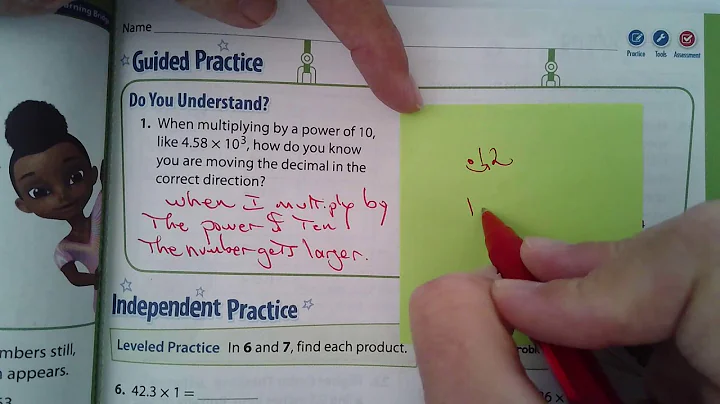 Name
Practice Tools Assessment
Guided Practice
Do You Understand?
1. When multiplying by a power of 10,
like 4.58 × 10³, how do you know
you are moving the decimal in the
correct direction?
when I multiply by
The power of Ten
The number gets larger.
.12
1
Independent Practice
Leveled Practice In 6 and 7, find each product.
6. 42.3 × 1 =
mbers still,
n appears.